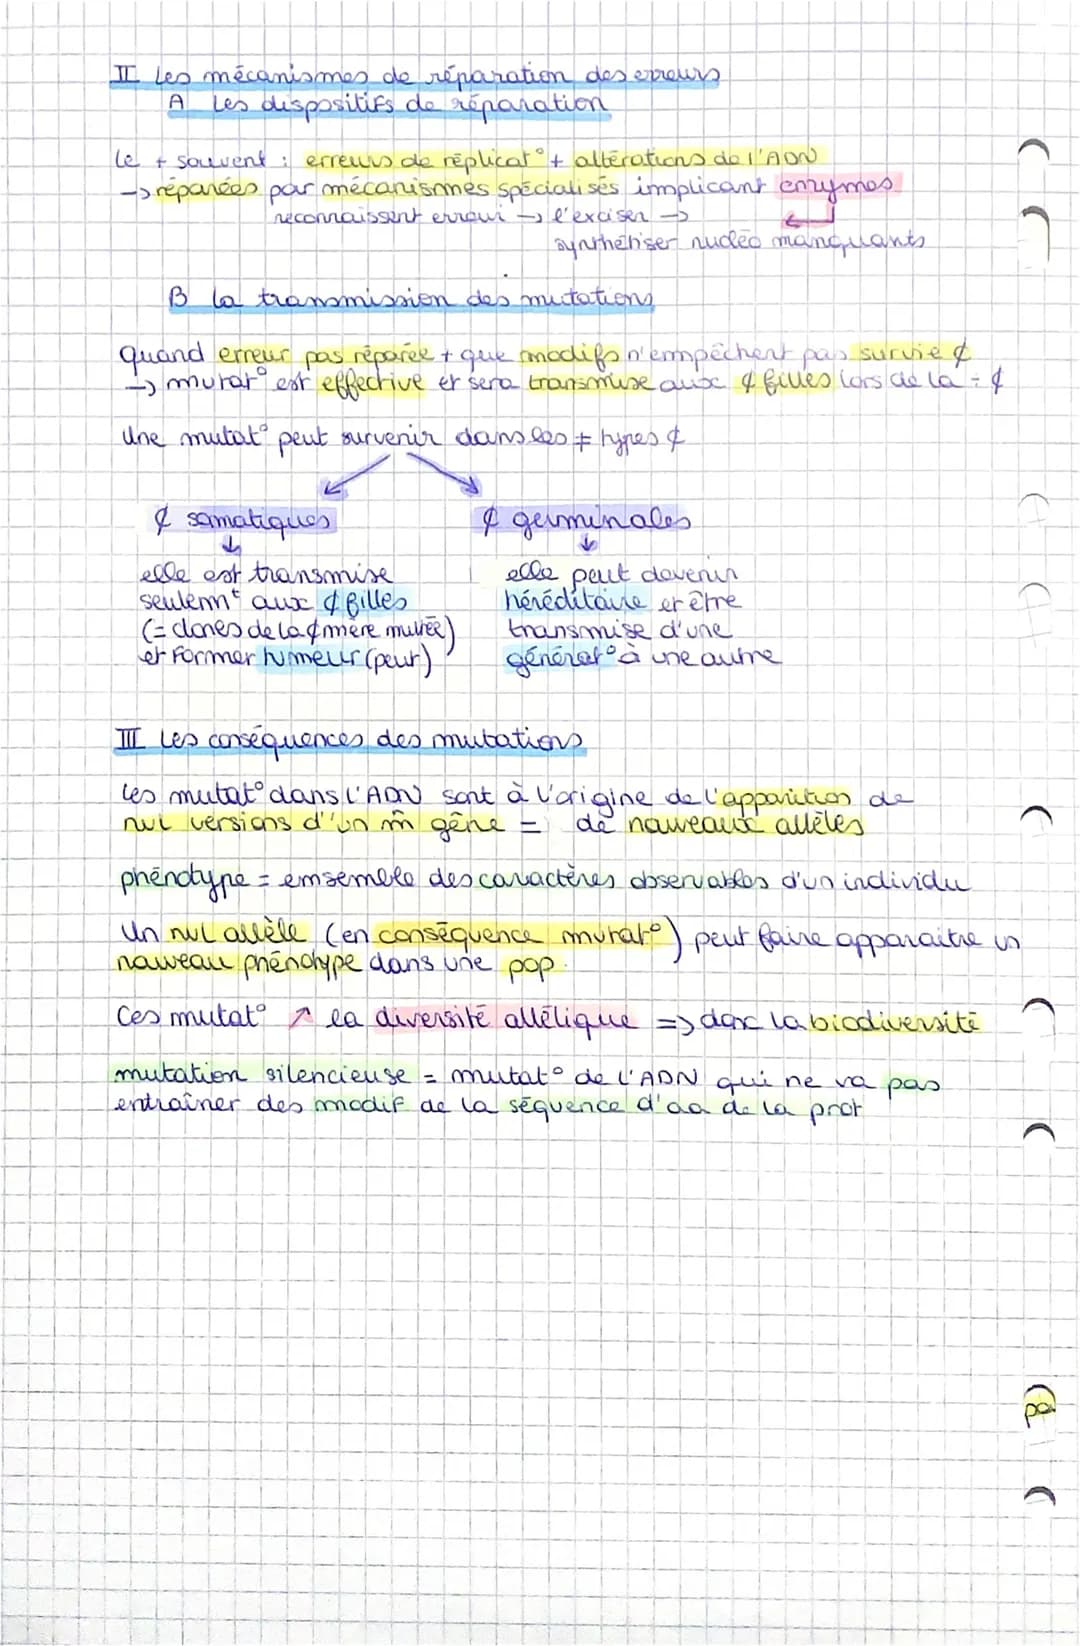 II Les mécanismes de réparation des erreurs
A Les dispositifs de réparation
Le + souvent : erreurs de réplicat° + altérations de l'ADN
→ réparées par mécanismes spécialisés implicant enzymes
reconnaissent erreur → l'exciser →
synthétiser nucléo manquants
B La transmission des mutations
Quand erreur pas réparée + que modifs n'empêchent pas survie ¢
→ mutat° est effective et sera transmise aux ¢ filles lors de la ÷ ¢
Une mutat° peut survenir dans les ≠ types ¢
¢ somatiques
¢ germinales
elle est transmise
seulemt aux ¢ filles
(= clones de la ¢ mère mutée)
et former tumeur (peut)
elle peut devenir
héréditaire et être
transmise d'une
générat° à une autre
III Les conséquences des mutations
Les mutat° dans l'ADN sont à l'origine de l'apparition de
nvl versions d'un m̂ gène = de nouveaux allèles
phénotype = emsemble des caractères observables d'un individu
Un nvl allèle (en conséquence mutat°) peut faire apparaitre un
nouveau phénotype dans une pop.
Ces mutat° ↗ la diversité allélique => donc la biodiversité
mutation silencieuse = mutat° de l'ADN qui ne va pas
entraîner des modif de la séquence d'aa de la prot
pa